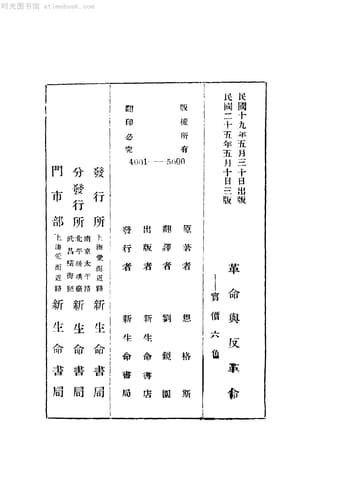 时光图书馆 atimebook.com
民國十九年五月三十日出版
民國二十五年五月十日三版
革命與反革命
——實價六角
版權所有
翻印必究
4001——5000
原著者 恩格斯
翻譯者 劉鏡園
出版者 新生命書店
發行者 新生命書局
發行所 上海愛而近路 新生命書局
分發行所 南京太平路 北平琉璃廠 武昌橫街 新生命書局
門市部 上海愛而近路 新生命書局